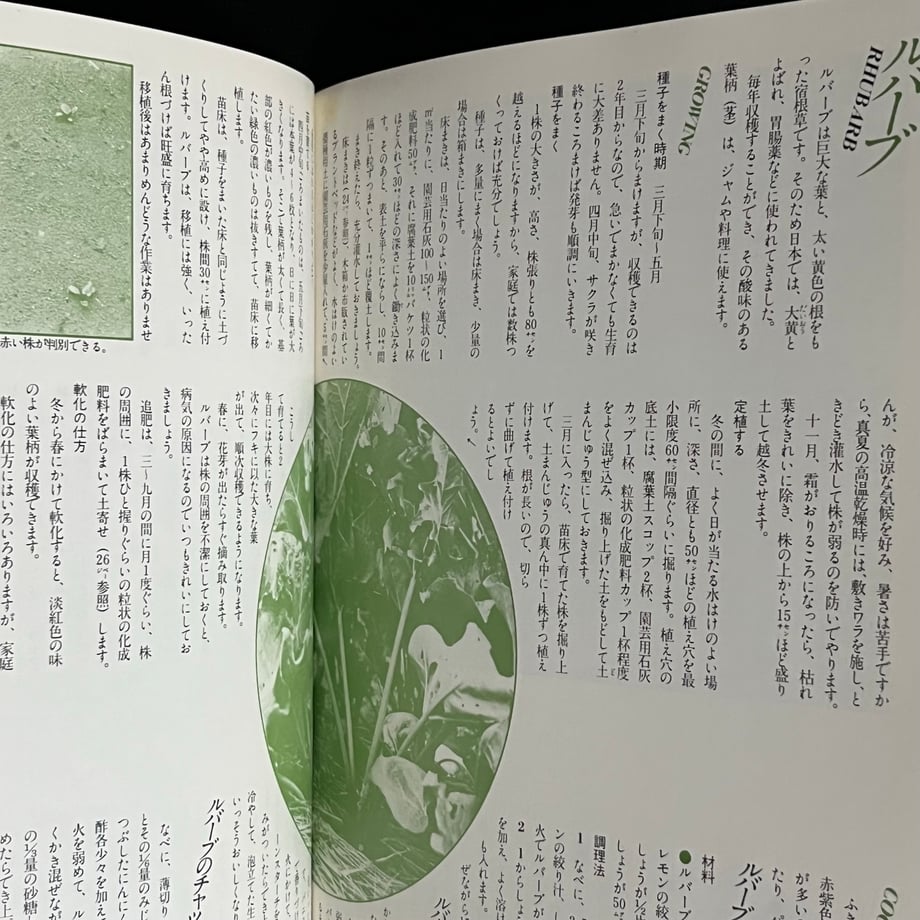 ルバーブ
RHUBARB
ルバーブは巨大な葉と、太い黄色の根をも
った宿根草です。そのため日本では、大黄と
よばれ、胃腸薬などに使われてきました。
毎年収穫することができ、その酸味のある
葉柄（茎）は、ジャムや料理に使えます。
GROWING
種子をまく時期　三月下旬～五月
三月下旬からまけますが、収穫できるのは
2年目からなので、急いでまかなくても生育
に大差ありません。四月中旬、サクラが咲き
終わるころまけば発芽も順調にいきます。
種子をまく
1株の大きさが、高さ、株張りとも80㌢を
越えるほどになりますから、家庭では数株つ
くっておけば充分でしょう。
種子は、多量にまく場合は床まき、少量の
場合は箱まきにします。
床まきは、日当たりのよい場所を選び、1
㎡当たりに、園芸用石灰100～150㌘、粒状の化
成肥料50㌘、それに腐葉土を10㍑バケツ1杯
ほど入れて30㌢ほどの深さによく鋤き込みま
す。そのあと、表土を平らにならし、10㌢間
隔に1粒ずつまいて、1㌢ほど覆土します。
まき終えたら、充分灌水しておきましょう。
床まきは（24㌻参照）、木箱か市販されてい
四月中旬ごろまいたものは、五月下旬ごろ
には本葉が4～6枚になり、日に日に葉が大
きくなります。そこで葉柄が太くて長く、基
部の紅色が濃いものを残し、葉柄が細くてか
たい緑色の濃いものは抜きすてて、苗床に移
植します。
苗床は、種子をまいた床と同じように土づ
くりしてやや高めに設け、株間30㌢に植え付
けます。ルバーブは、移植には強く、いった
ん根づけば旺盛に育ちます。
移植後はあまりめんどうな作業はありませ
赤い株が判別できる。
んが、冷涼な気候を好み、暑さは苦手ですか
ら、真夏の高温乾燥時には、敷きワラを施し、と
きどき灌水して株が弱るのを防いでやります。
十一月、霜がおりるころになったら、枯れ
葉をきれいに除き、株の上から15㌢ほど盛り
土して越冬させます。
定植する
冬の間に、よく日が当たる水はけのよい場
所に、深さ、直径とも50㌢ほどの植え穴を最
小限度60㌢間隔ぐらいに掘ります。植え穴の
底土には、腐葉土スコップ2杯、園芸用石灰
カップ1杯、粒状の化成肥料カップ1杯程度
をよく混ぜ込み、掘り上げた土をもどして土
まんじゅう型にしておきます。
三月に入ったら、苗床で育てた株を掘り上
げて、土まんじゅうの真ん中に1株ずつ植え
付けます。根が長いので、切ら
ずに曲げて植え付け
るとよいでし
ょう。
て育てると2
年目には大株に育ち、
次々にフキに似た大きな葉
が出て、順次収穫できるようになります。
春に、花芽が出たらすぐ摘み取ります。
ルバーブは株の周囲を不潔にしておくと、
病気の原因になるのでいつもきれいにしてお
きましょう。
追肥は、三～九月の間に月1度ぐらい、株
の周囲に、1株ひと握りぐらいの粒状の化成
肥料をばらまいて土寄せ（26㌻参照）します。
軟化の仕方
冬から春にかけて軟化すると、淡紅色の味
のよい葉柄が収穫できます。
軟化の仕方にはいろいろありますが、家庭
材料
●ルバーブ
レモンの絞
しょうが1/2
しょうが50㌘
調理法
1　なべに、2
ンの絞り汁、し
火でルバーブが
2　1からしょう
を加え、よく溶け
も入れます。
ルバーブのチャツ
なべに、薄切り
とその1/6量のみじ
つぶしたにんにく
酢各少々を加え
火を弱めて、ル
くかき混ぜなが
の1/3量の砂糖
めたらでき上